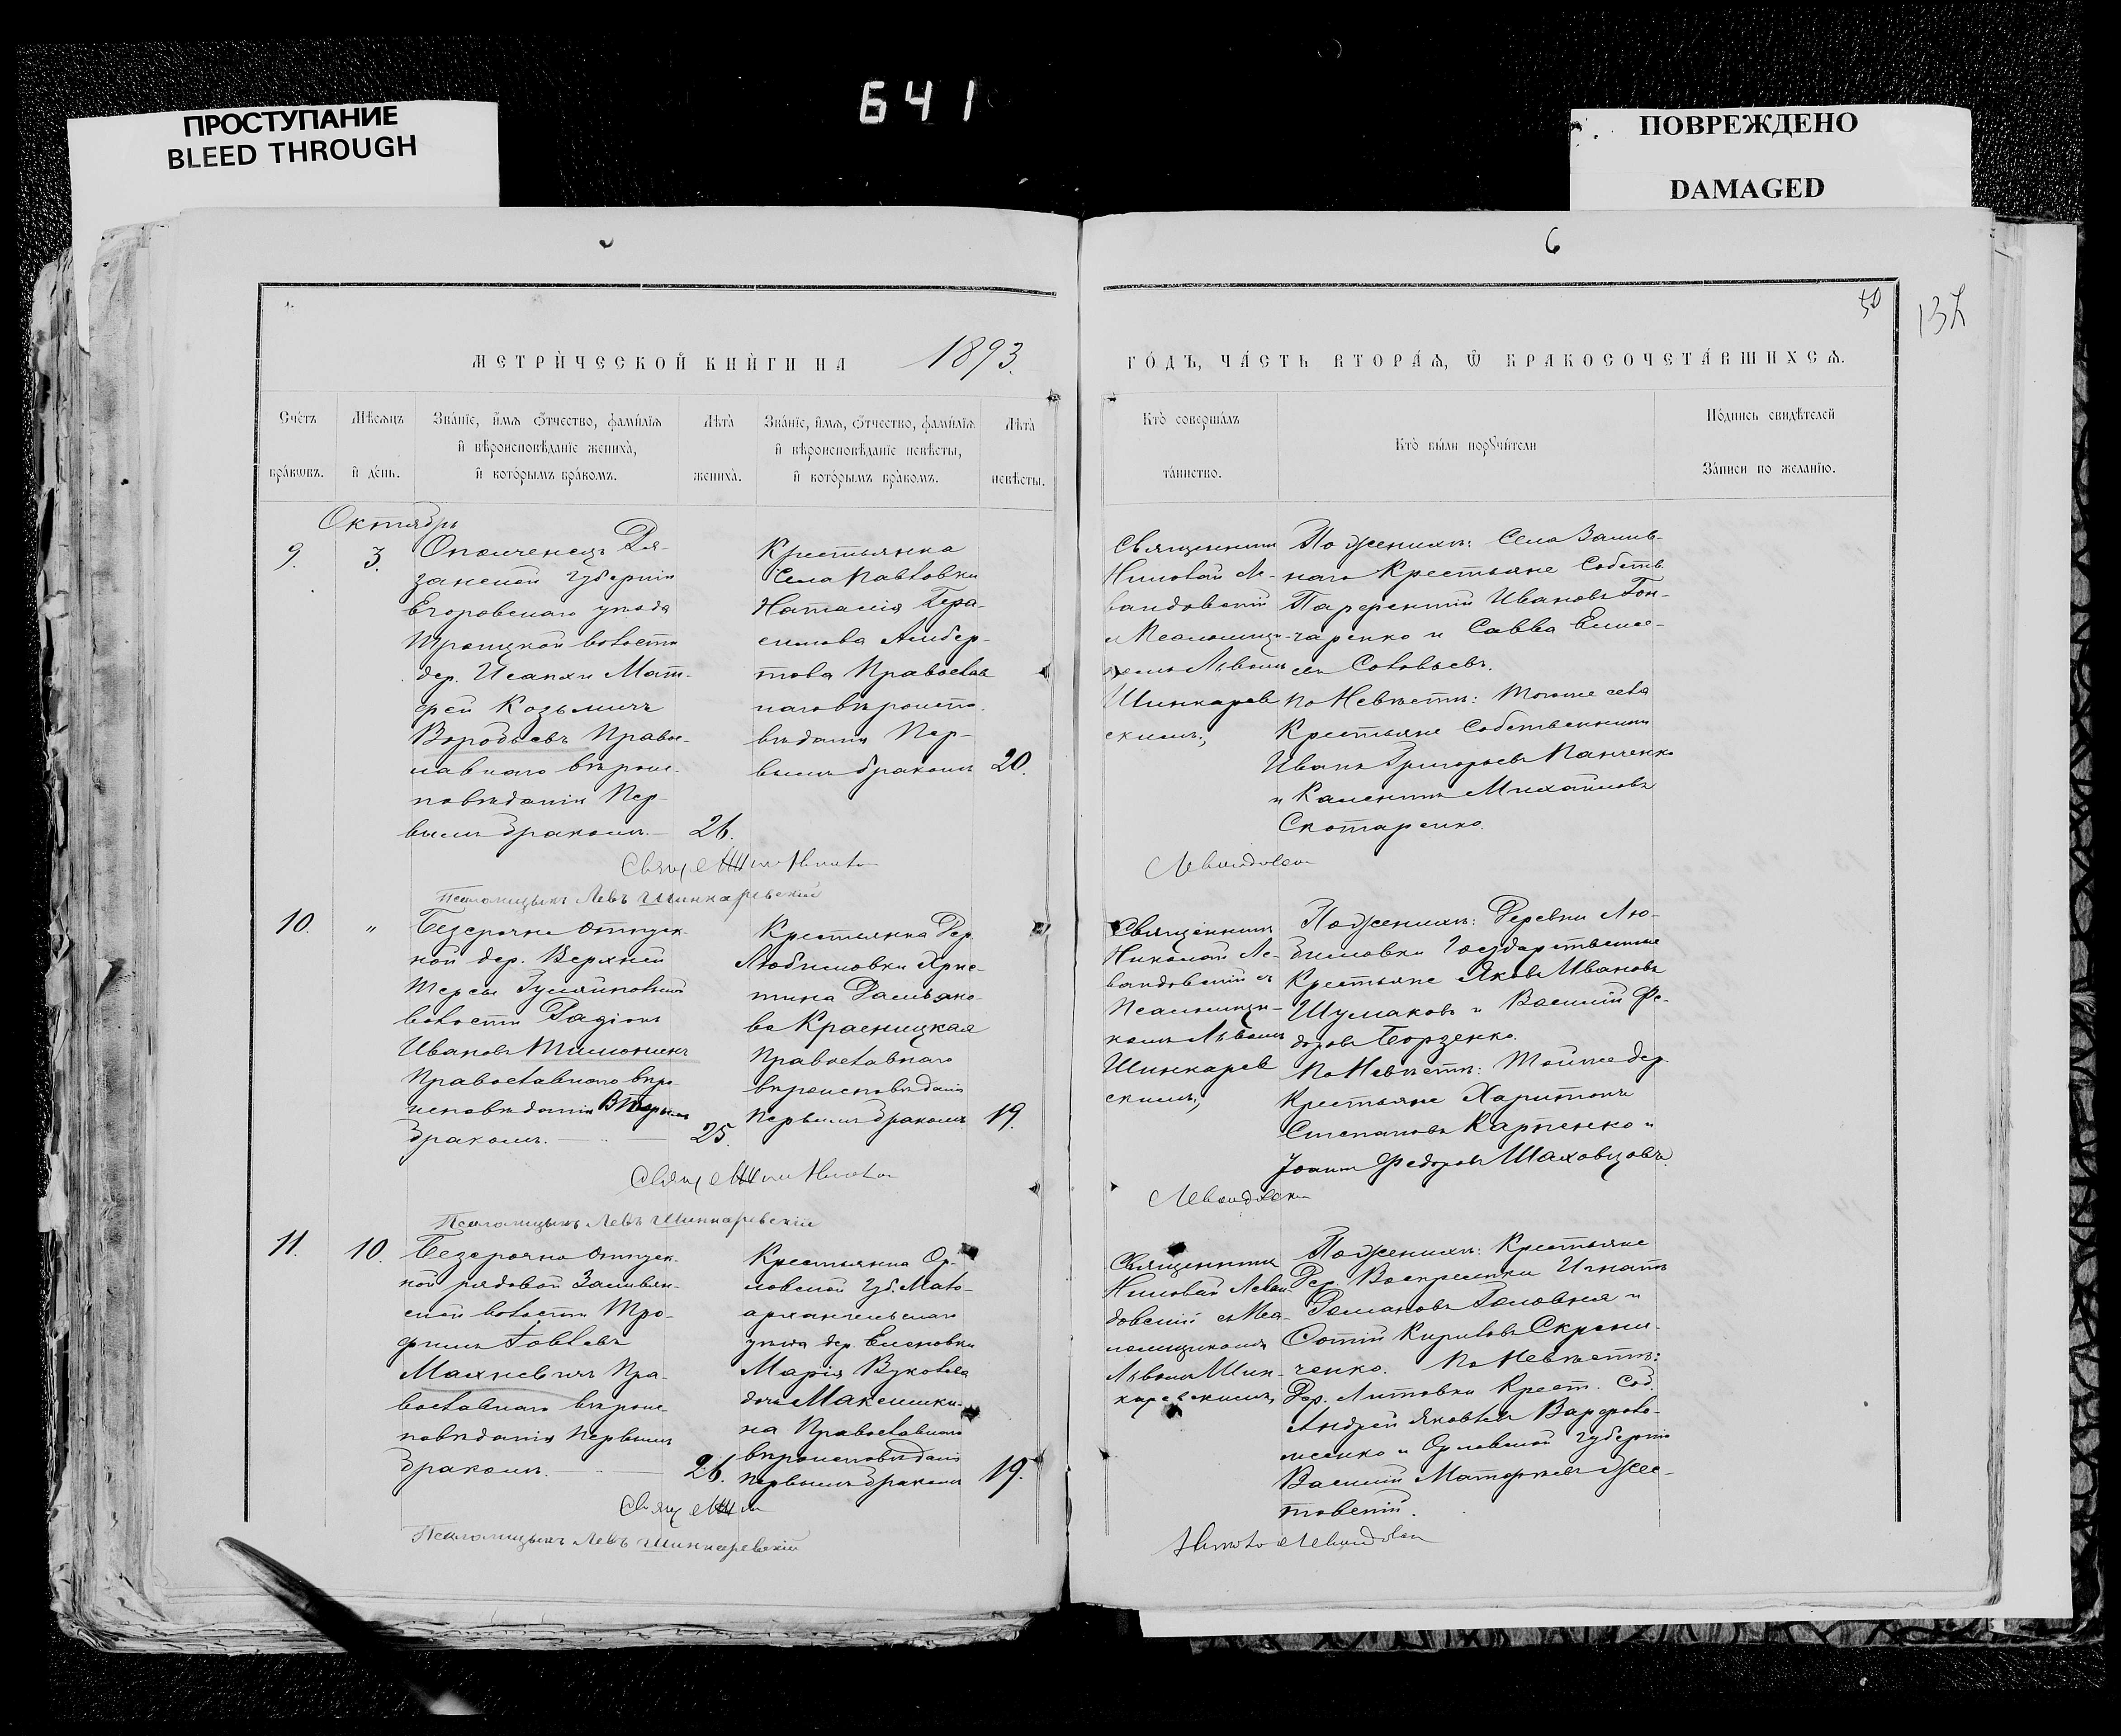 641
ПРОСТУПАНИЕ
BLEED THROUGH
ПОВРЕЖДЕНО
DAMAGED
6
50
137
МЕТРИ́ЧЕСКОЙ КНИ́ГИ НА 1893.
Сче́тъ бра́кѡвъ.
Мѣ́сѧцъ и҆ де́нь.
Зва́нїе, и҆́мѧ, ѻ҆́тчество, фамі́лїѧ
и҆ вѣроисповѣ́данїе жениха̀,
и҆ кото́рымъ бра́комъ.
Лѣта̀ жениха̀.
Зва́нїе, и҆́мѧ, ѻ҆́тчество, фамі́лїѧ
и҆ вѣроисповѣ́данїе невѣ́сты,
и҆ кото́рымъ бра́комъ.
Лѣта̀ невѣ́сты.
ГО́ДЪ, ЧА́СТЬ ВТОРА́Ѧ, Ѡ҆ БРАКОСОЧЕТА́ВШИХСѦ.
Кто̀ соверша́лъ
та́инство.
Кто̀ бы́ли порꙋчи́тели
По́дпись свидѣ́телей
За́писи по жела́нїю.
Октябрь
9.
3.
Ополченецъ Ря-
занской Губерніи
Егоровскаго уѣзда
Троицкой волости
дер. Исаихи Мат-
фей Козьмичъ
Воробьевъ Право-
славнаго вѣроис-
повѣданія Пер-
вымъ бракомъ.
26.
Крестьянка
Села Павловки
Наталія Гера-
симова Альбер-
това Православ
наго вѣроиспо-
вѣданія Пер-
вымъ бракомъ
20.
Священникъ
Николай Ле-
вандовскій
съ Псаломщи-
комъ Львомъ
Шинкарев
скимъ;
По Женихѣ: Села Залив-
наго Крестьяне Собств.
Парфентій Ивановъ Гон-
чаренко и Савва Елисе-
евъ Соловьевъ.
По Невѣстѣ: Тогоже села
Крестьяне Собственники
Иванъ Григорьевъ Панченко
и Калениکъ Михайловъ
Скотаренко.
Священник Никола
Левандовски
Псаломщикъ Левъ Шинкаревскій
10.
"
Безсрочно отпуск
ной дер. Верхній
Терсы Гуляйпольской
волости Радіонъ
Ивановъ Тимошикъ
Православнаго вѣро
исповѣданія Вторымъ
бракомъ.
25.
Крестьянка Дер
Любимовки Хрис-
тина Дамьяно-
ва Красницкая
Православнаго
вѣроисповѣданія
Первымъ бракомъ
19.
Священникъ
Николай Ле-
вандовскій съ
Псаломщи-
комъ Львомъ
Шинкарев
скимъ;
По Женихѣ: Деревни Лю-
бимовки Государственные
Крестьяне Яковъ Ивановъ
Шумаковъ и Василій Фе-
доровъ Борзенко.
По Невѣстѣ: Тойже дер.
Крестьяне Харитонъ
Степановъ Карпенко и
Іоаннъ Федоровъ Шаховцовъ.
Священник Никола
Левандовски
Псаломщикъ Левъ Шинкаревскій
11.
10.
Безсрочно отпуск-
ной рядовой Заливян-
ской волости Тро-
фимъ Іовлевъ
Махневичъ Пра-
вославнаго вѣроис-
повѣданія Первымъ
бракомъ.
26.
Крестьянка Ор-
ловской Губ. Мало-
архангельскаго
уѣзда дер. Еленовки
Марія Вуколова
дочь Максимки-
на Православнаго
вѣроисповѣданія
Первымъ бракомъ
19.
Священникъ
Николай Леван-
довскій съ Пса-
ломщикомъ
Львомъ Шин-
каревскимъ;
По Женихѣ: Крестьяне
Дер. Воскресенки Игнатъ
Романовъ Головня и
Фотій Кириловъ Скрыни-
ченко. По Невѣстѣ:
Дер. Литовки Крест. Соб.
Андрей Яковлевъ Варфоло-
меенко и Орловской Губерніи
Василій Матфеевъ Жел-
товскій.
Священник
Никола Левандовски
Псаломщикъ Левъ Шинкаревскій